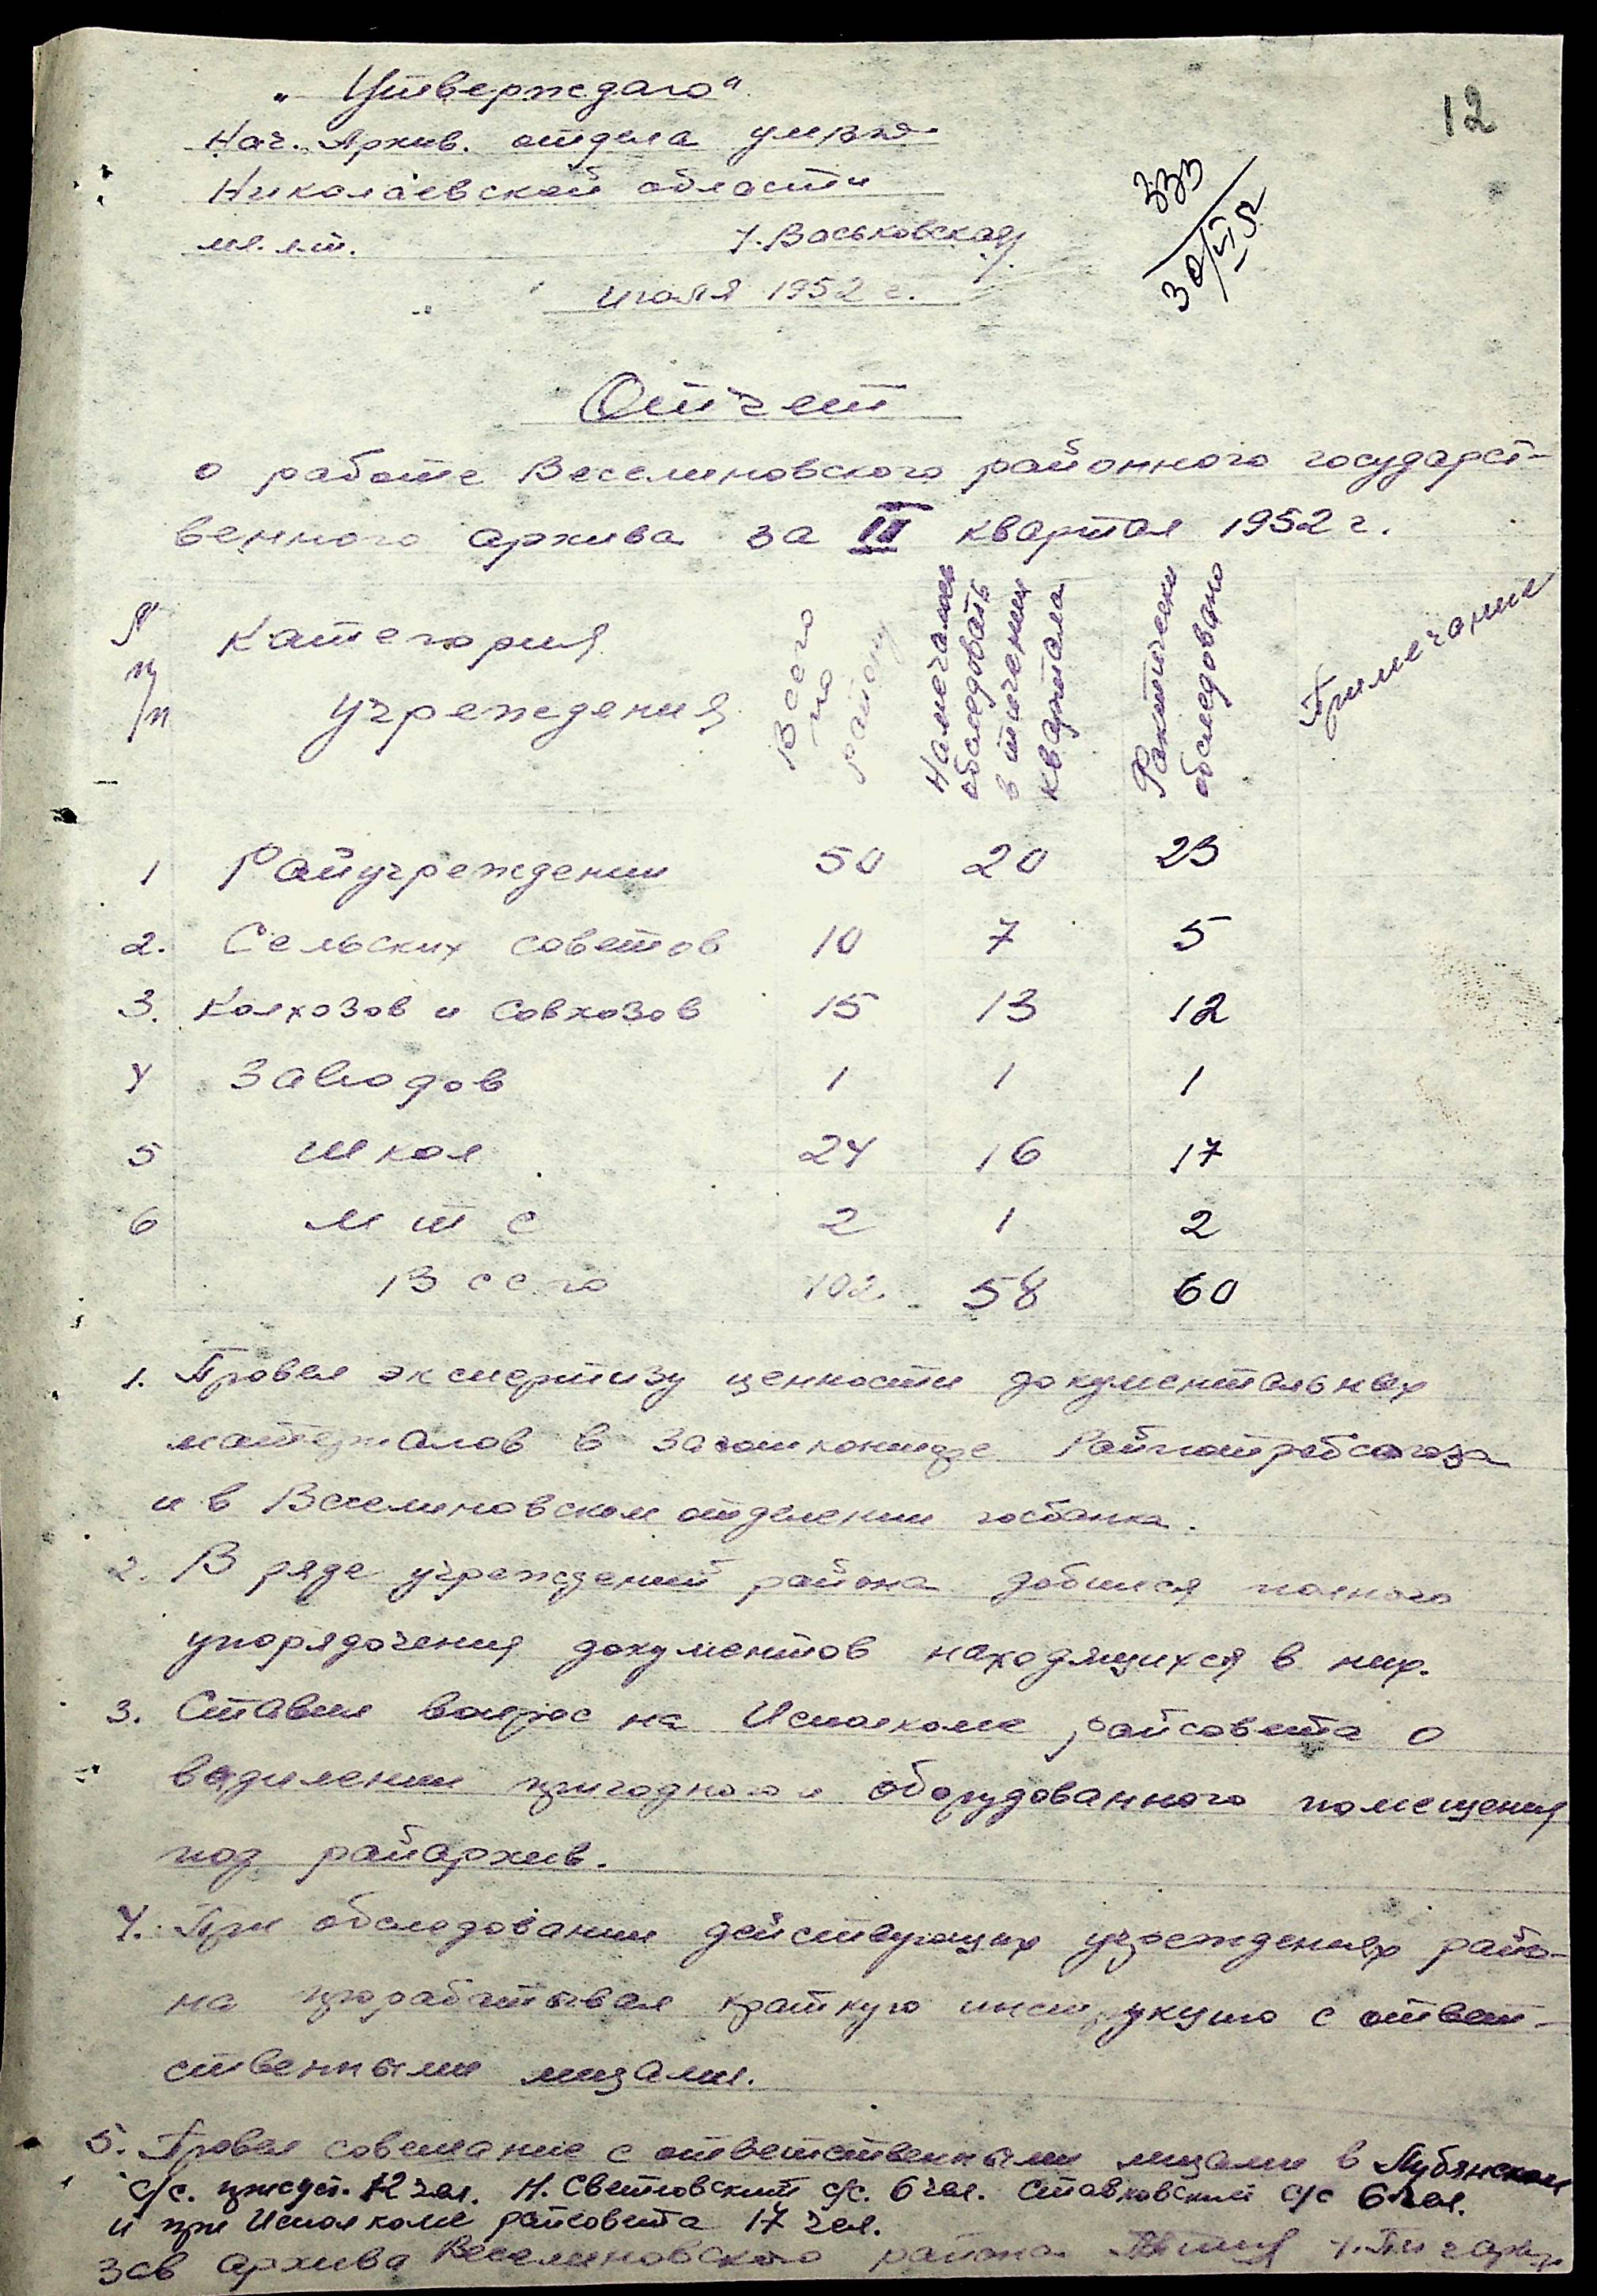 12
„Утверждаю“
Нач. Архив. отдела умвд
Николаевской области
мл. л-т. /. Васьковская/.
333
30/VI 52
июля 1952 г.
Отчет
о работе Веселиновского районного государст-
венного архива за II квартал 1952 г.
№ п/п Категория учреждения Всего по району Намечалось обследовать в течении квартала Фактически обследовано Примечание
1 Райучреждении 50 20 23
2. Сельских советов 10 7 5
3. Колхозов и совхозов 15 13 12
4 Заводов 1 1 1
5 школ 24 16 17
6 М Т С 2 1 2
Всего 102 58 60
1. Провел экспертизу ценности документальных
материалов в Заготконторе Райпотребсоюза
и в Веселиновском отделении госбанка.
2. В ряде учреждений района добился полного
упорядочения документов находящихся в них.
3. Ставил вопрос на Исполкоме райсовета о
выделении пригодного и оборудованного помещения
под райархив.
4. При обследовании действующих учреждениях райо-
на прорабатывал краткую инструкцию с ответ-
ственными лицами.
5. Провел совещание с ответственными лицами в Лубянском
с/с. присут. 12 чел. Н. Светловский с/с. 6 чел. Ставковский с/с 6 чел.
и при Исполкоме райсовета 17 чел.
Зав архива Веселиновского района